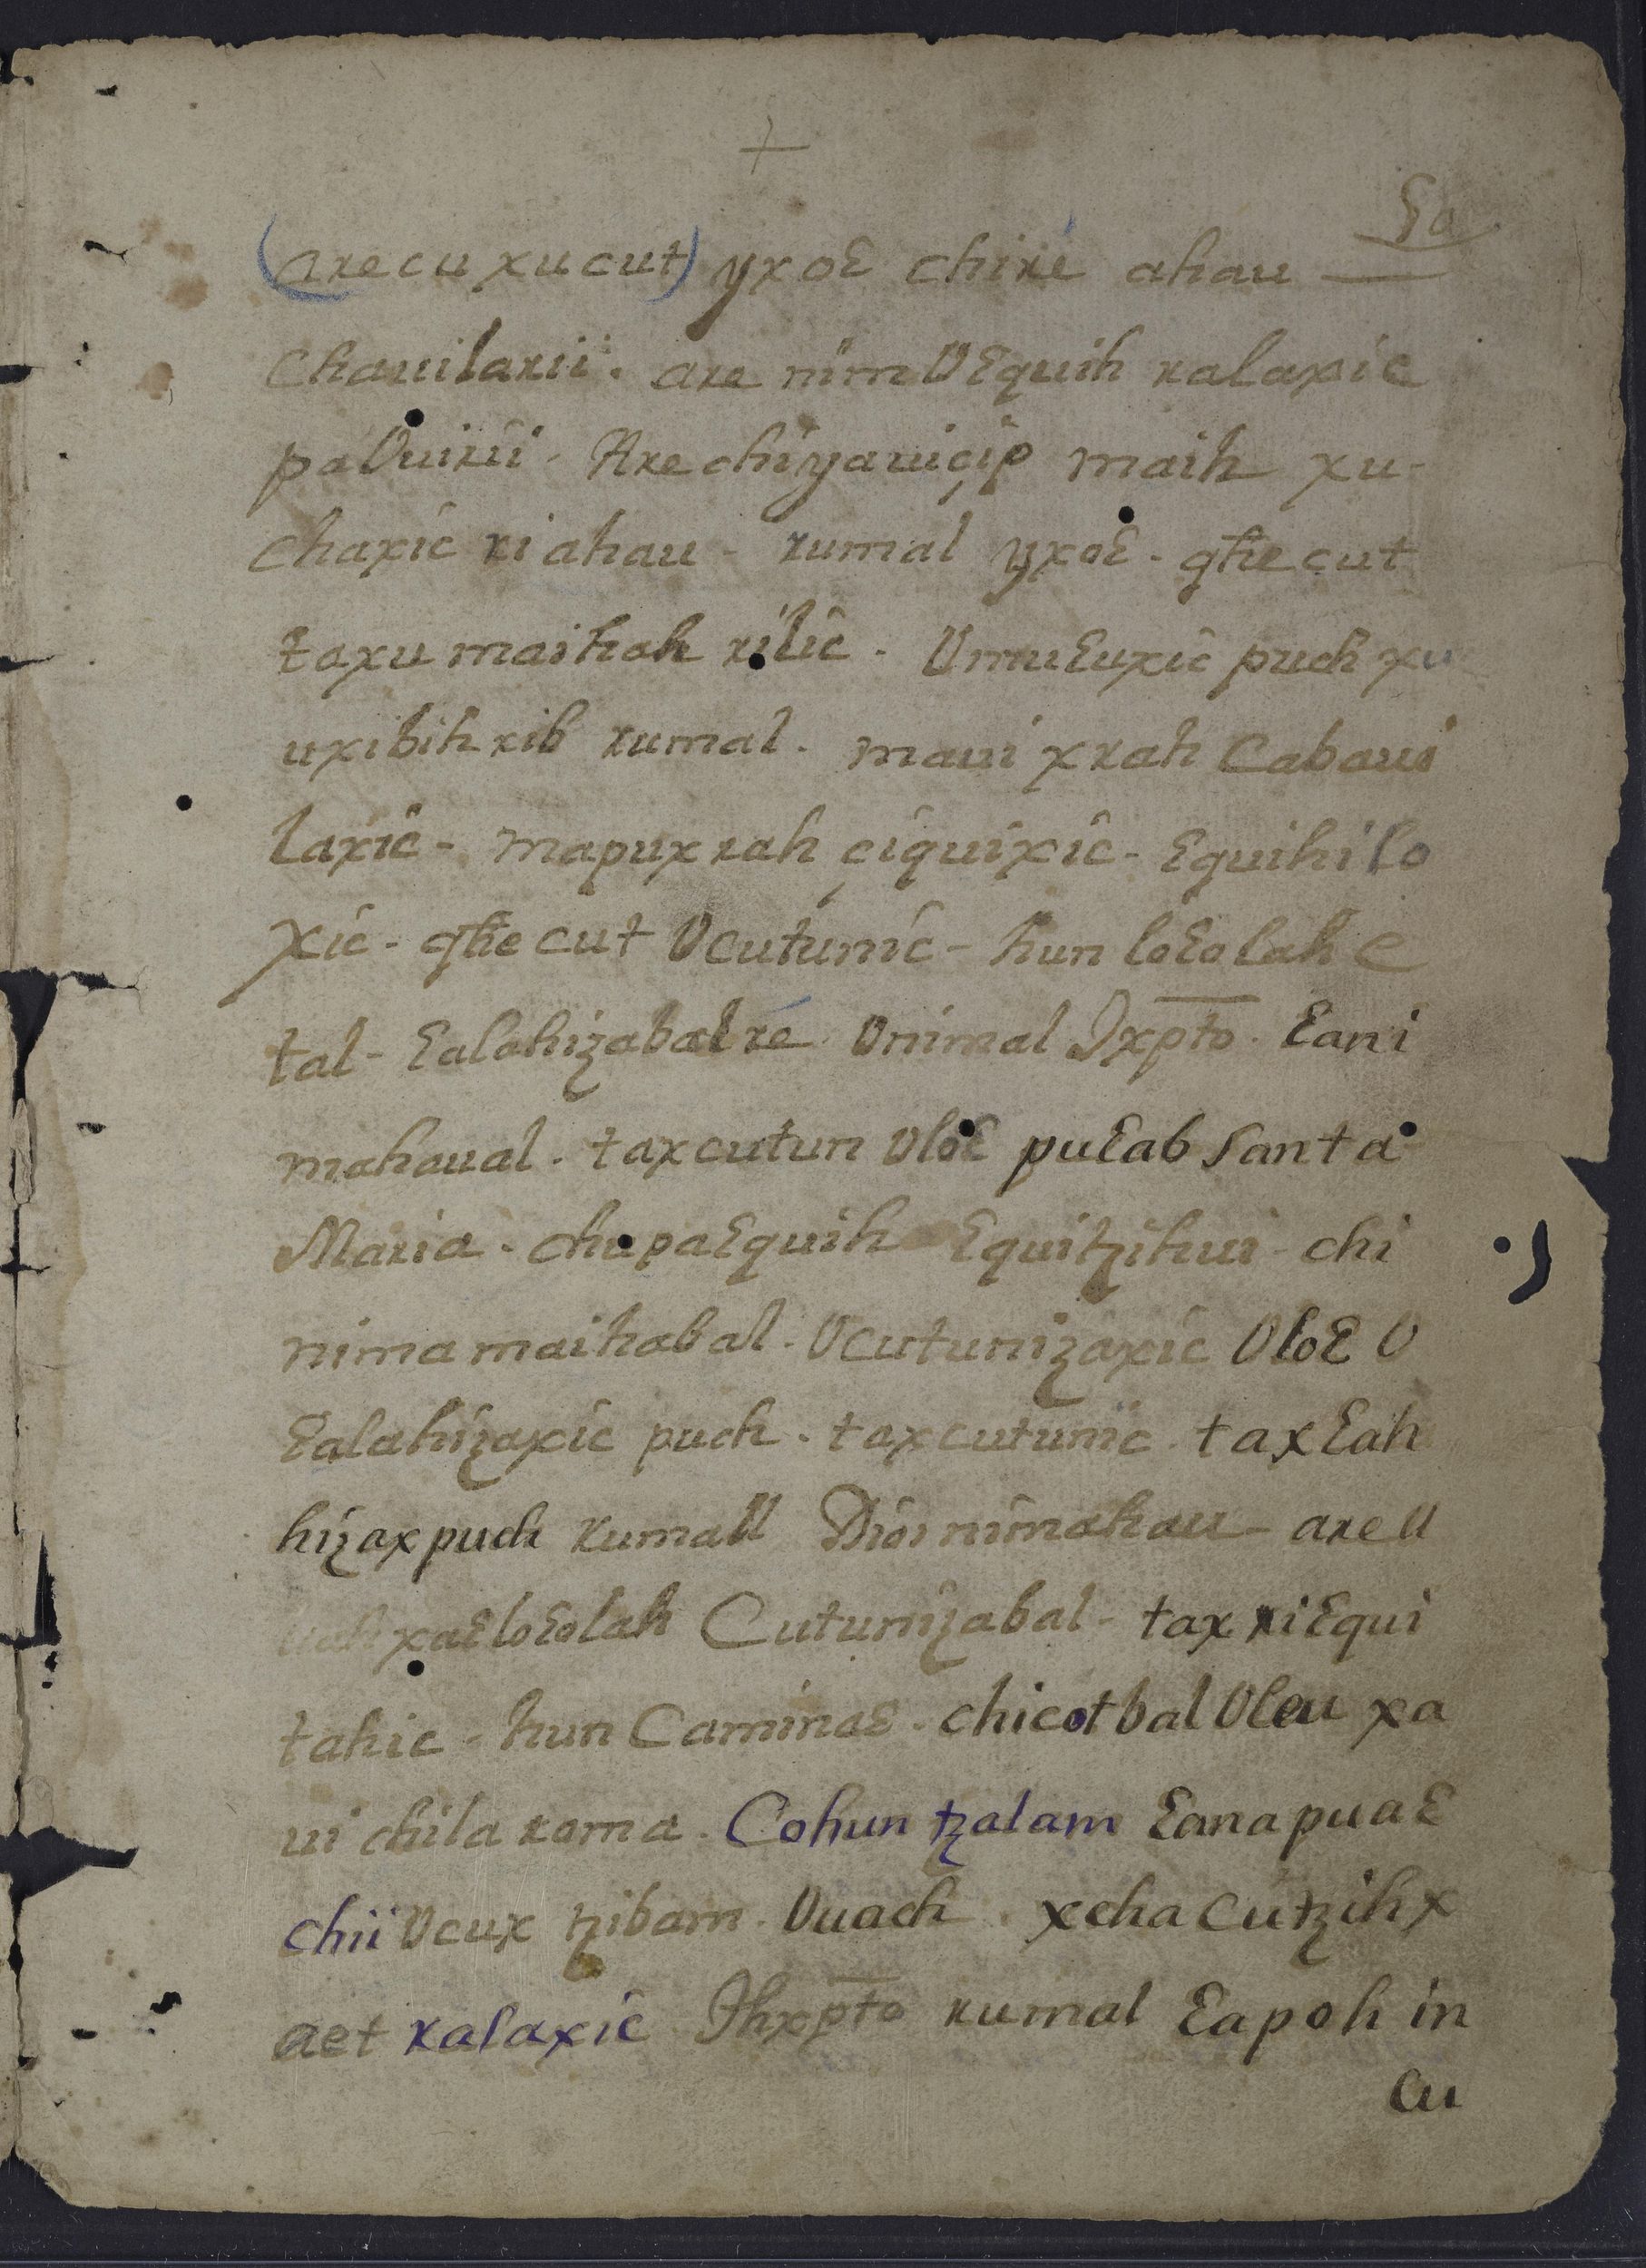 +
50
(are cu xu cut) yxoɛ chire ahau
Chauilarii. are nim Vɛquih ralaxic
pa Vuirii. Are chiyauiçip maih xu-
chaxic ri ahau - rumal yxoɛ. qħe cut
taxu maihah rilic. Vmuɛuxic puch xu
uxibih rib rumal. maui xrah Cabaui
laxic - mapuxrah çiquixic - ɛquihilo
xic - qħe cut Vcutunic - hun loɛolah e
tal - ɛalahizabal re Vnimal Jxpto. ɛani
mahaual. taxcutun Vloɛ puɛab santa
Maria. chupaɛquih ɛquitzihui chi
nima maihabal. Vcutunizaxic Vloɛ V
ɛalahizaxic puch. taxcutunic. taxɛah
hizaxpuch rumall Dios nimahau - are u
uah xaɛloɛolah Cutunizabal - tax riɛqui
tahic - hun Caminaɛ. chicotbal Vleu xa
ui chila roma. Cohun tzalam ɛanapuaɛ
chii Vcux tzibam. Vuach. xcha cutzihx
aet ralaxic Jhxpto rumal ɛapoh in
cu